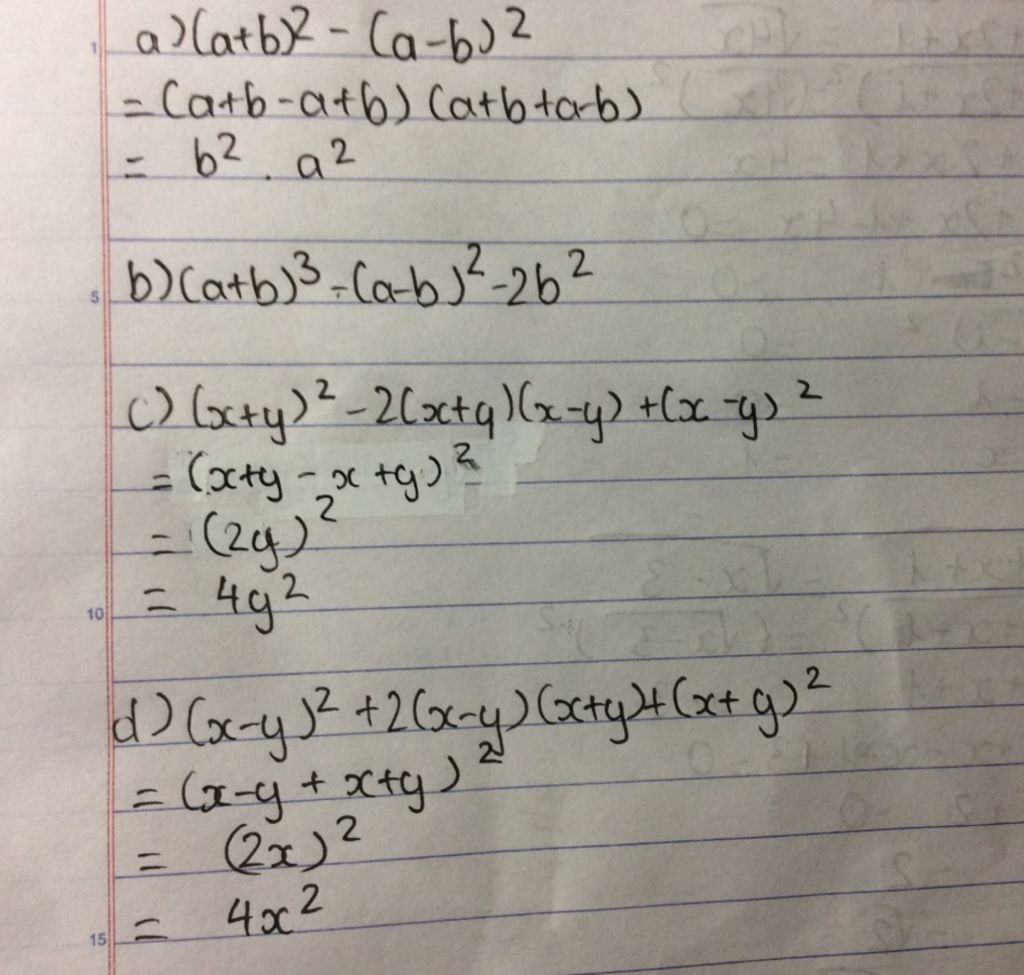 a) (a+b)² - (a-b)²
= (a+b-a+b) (a+b+a-b)
= b² . a²
5 b) (a+b)³ - (a-b)² - 2b²
c) (x+y)² - 2(x+y)(x-y) + (x-y)²
= (x+y - x+y)²
= (2y)²
10 = 4y²
d) (x-y)² + 2(x-y)(x+y) + (x+y)²
= (x-y + x+y)²
= (2x)²
15 = 4x²